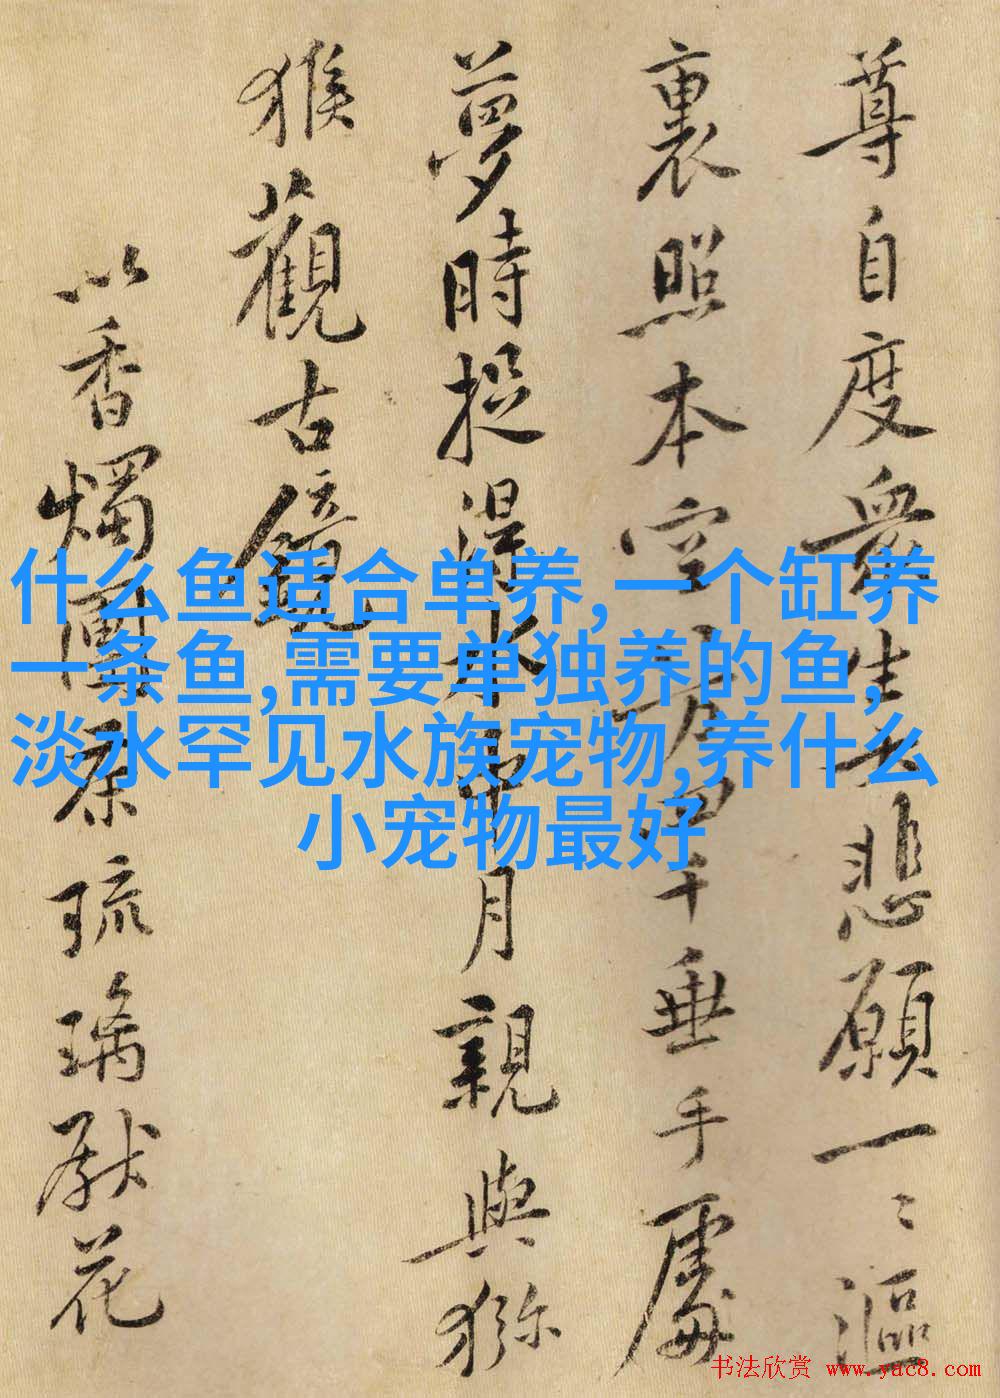 尊自度衆生無悲願一〻漚
裏照本空方
千垂手處
夢時捉得水中月親與獼
猴觀古鏡
以香燭團茶琉璃献花
什么鱼适合单养,一个缸养
一条鱼,需要单独养的鱼,
淡水罕见水族宠物,养什么
小宠物最好
书法欣赏 www.yac8.com